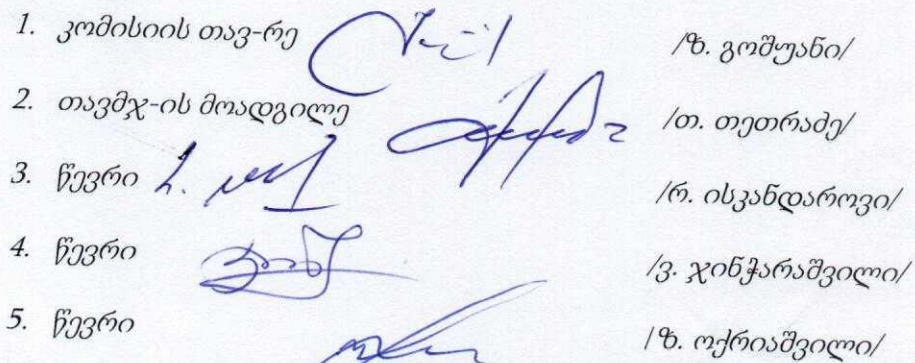 1. კომისიის თავ-რე /ზ. გოშუანი/
2. თავმჯ-ის მოადგილე /თ. თეთრაძე/
3. წევრი /რ. ისკანდაროვი/
4. წევრი /ვ. ჯინჭარაშვილი/
5. წევრი /ზ. ოქრიაშვილი/